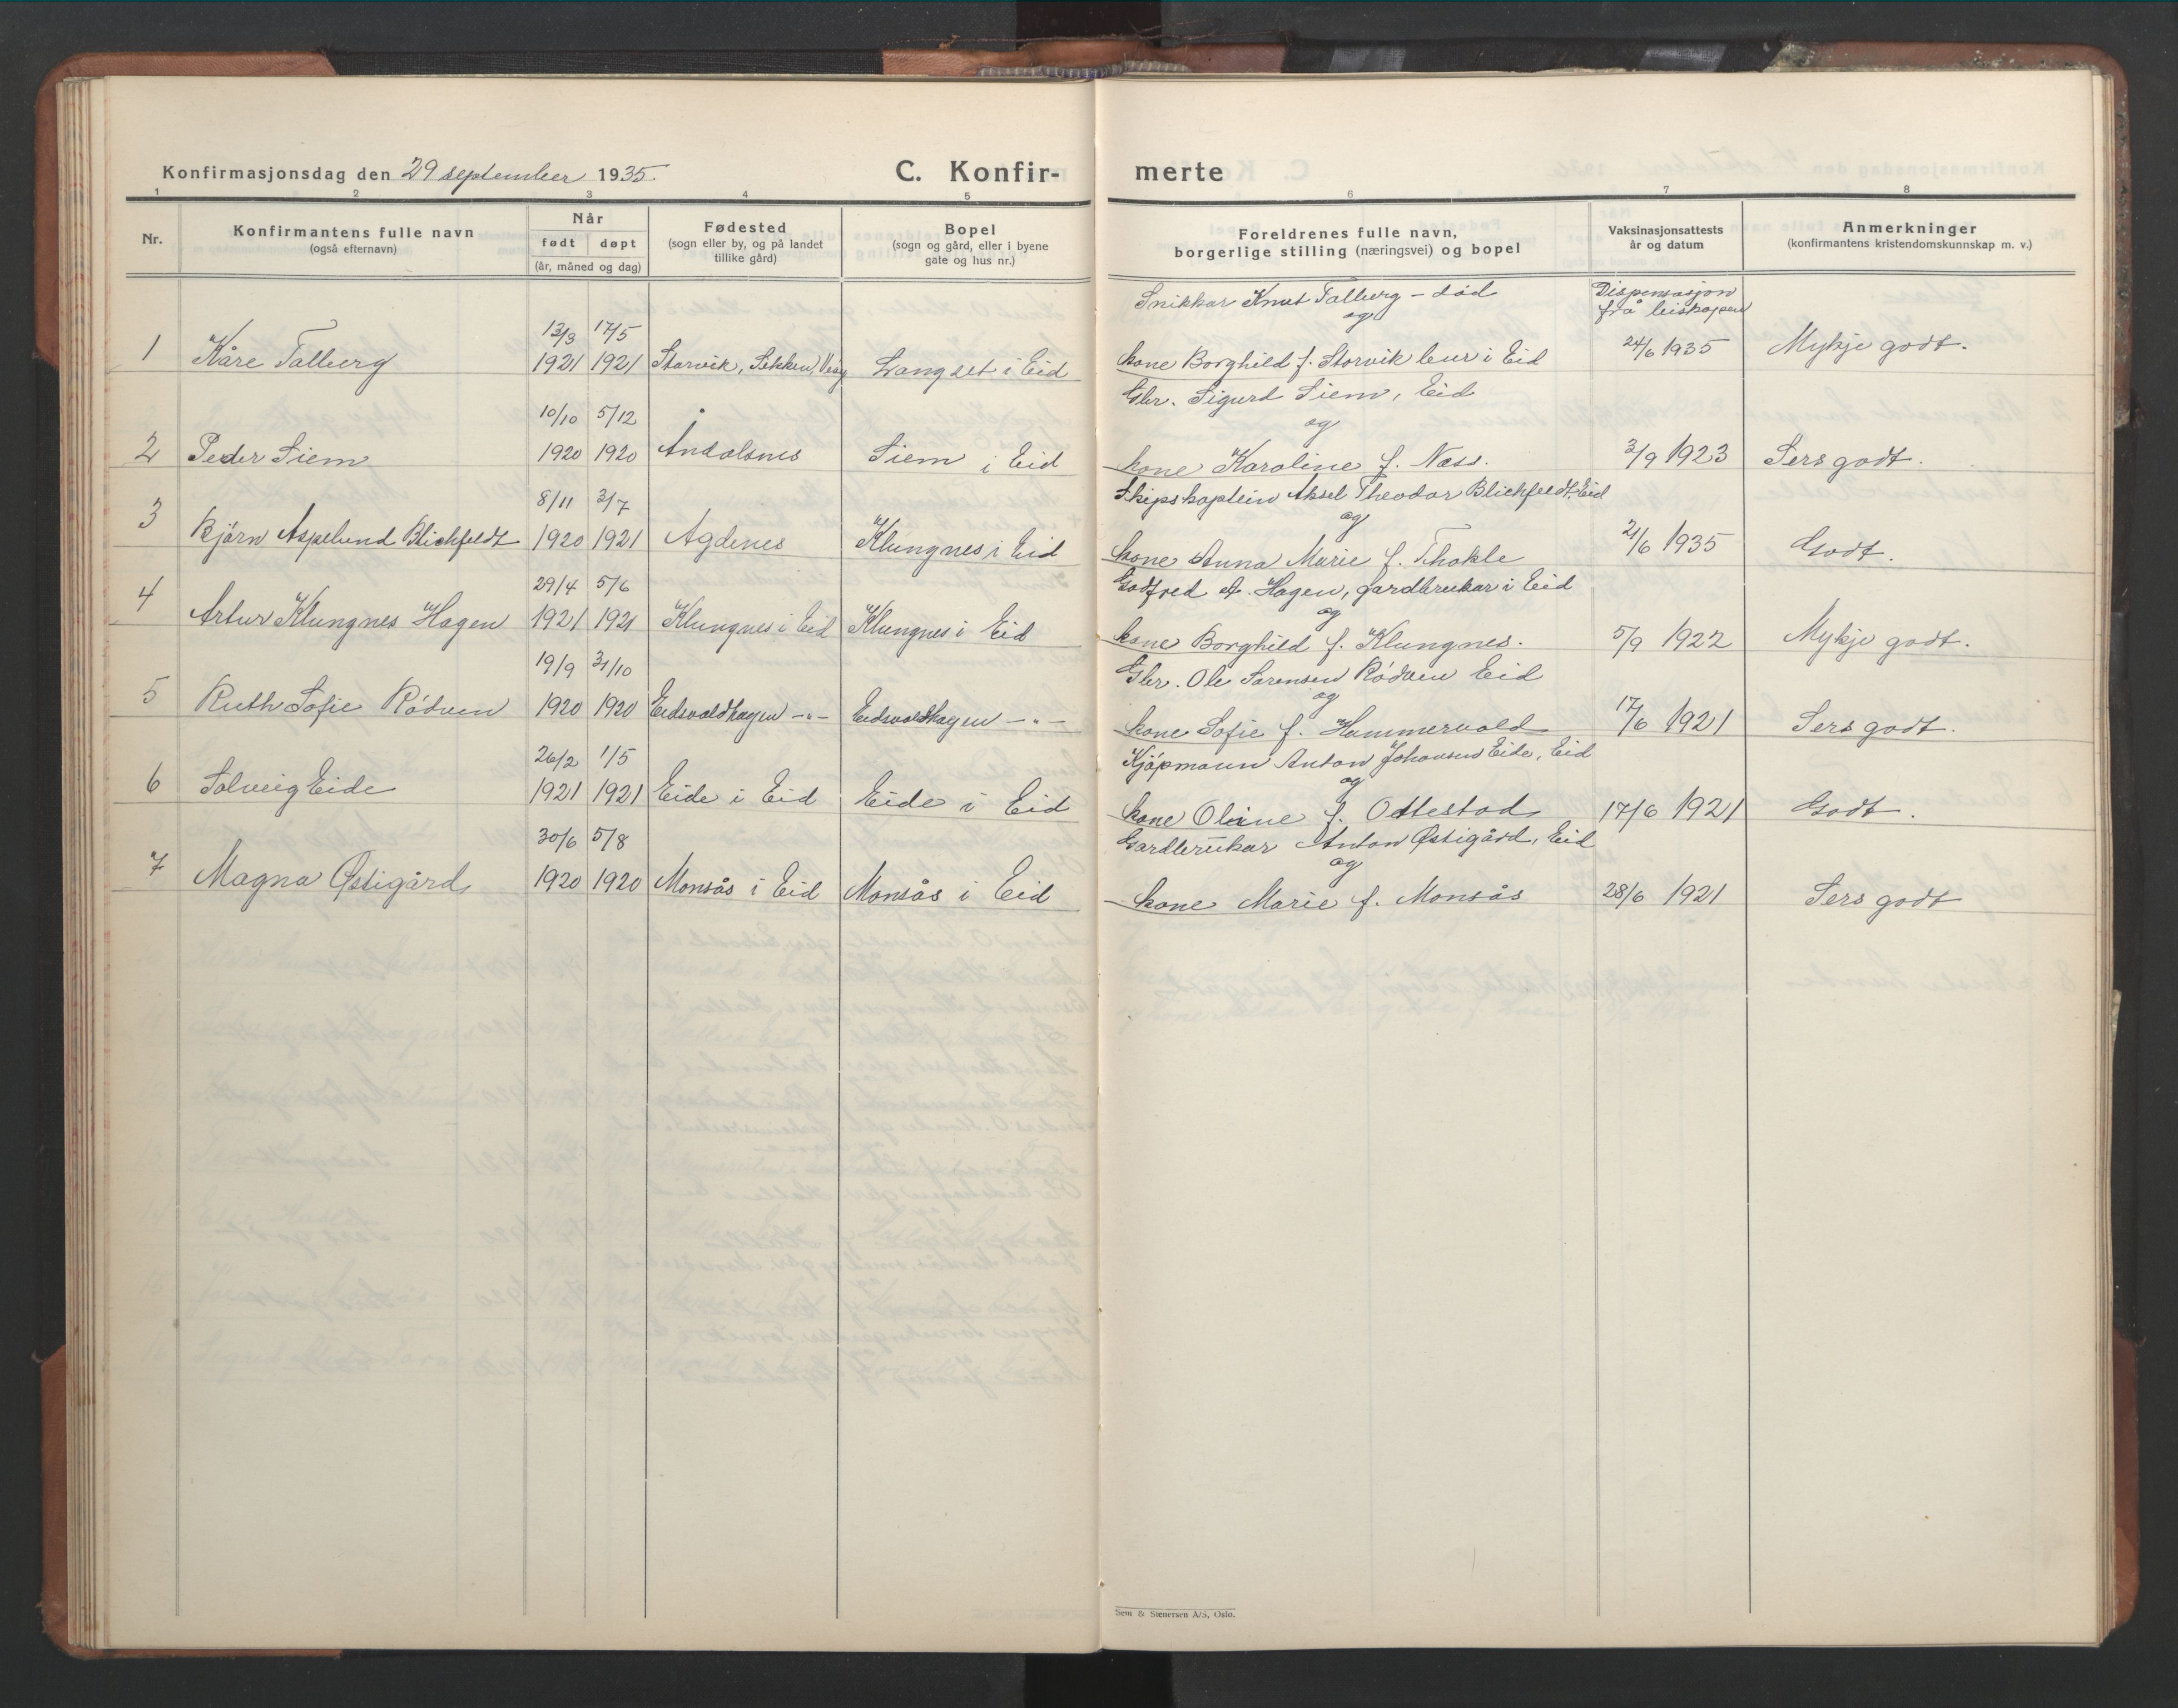 Konfirmasjonsdag den 29 september 1935.
C. Konfir-
merte
1 2 3 4 5 6 7 8
Nr.
Konfirmantens fulle navn
(også efternavn)
Når
født døpt
(år, måned og dag)
Fødested
(sogn eller by, og på landet
tillike gård)
Bopel
(sogn og gård, eller i byene
gate og hus nr.)
Foreldrenes fulle navn,
borgerlige stilling (næringsvei) og bopel
Vaksinasjonsattests
år og datum
Anmerkninger
(konfirmantens kristendomskunnskap m. v.)
Snikkar Knut Talberg – död
og
Dispensasjon
frå biskopen
13/3 17/5
1 Kåre Talberg 1921 1921 Storvik, Sekken, Veöy Langset i Eid kone Borghild f. Storvik bur i Eid 24/6 1935 Mykje godt.
Gbr. Sigurd Siem, Eid
og
10/10 5/12
2 Peder Siem 1920 1920 Åndalsnes Siem i Eid kone Karoline f. Næss. 3/9 1923 Sers godt.
Skipskaptein Aksel Theodor Blichfeldt, Eid
og
8/11 3/7
3 Björn Aspelund Blichfeldt 1920 1921 Agdenes Klungnes i Eid kone Anna Marie f. Thokle 21/6 1935 Godt.
Godfred A. Hagen, gardbrukar i Eid
og
29/4 5/6
4 Artur Klungnes Hagen 1921 1921 Klungnes i Eid Klungnes i Eid kone Borghild f. Klungnes. 5/9 1922 Mykje godt.
Gbr. Ole Sørensen Rödven Eid
og
19/9 31/10
5 Ruth Sofie Rödven 1920 1920 Eidsvoldhagen –"– Eidsvoldhagen –"– kone Sofie f. Hammervold 17/6 1921 Sers godt.
Kjöpmann Anton Johansen Eide, Eid
og
26/2 1/5
6 Solveig Eide 1921 1921 Eide i Eid Eide i Eid kone Oline f. Ottestad 17/6 1921 Godt.
Gardbrukar Anton Østigård, Eid
og
30/6 5/8
7 Magna Østigård 1920 1920 Monsås i Eid Monsås i Eid kone Marie f. Monsås 28/6 1921 Sers godt
Sem & Stenersen A/S, Oslo.